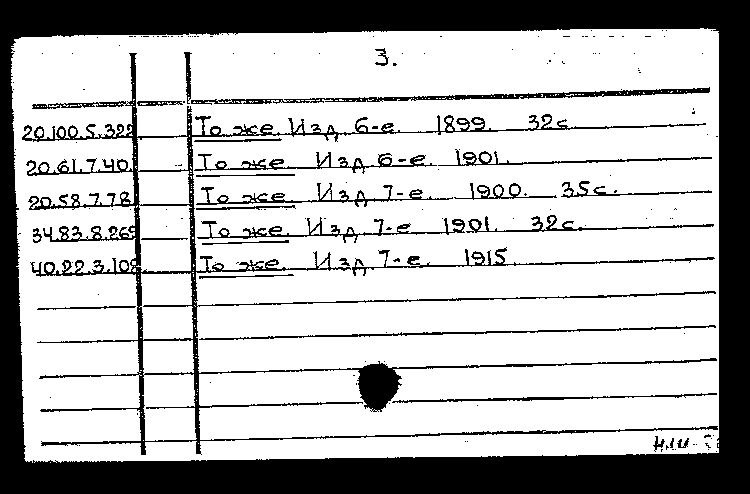 3.
20.100.5.322 То же. Изд. 6-е. 1899. 32с.
20.61.7.40. То же. Изд. 6-е. 1901.
20.58.7.78. То же. Изд. 7-е. 1900. 35с.
34.83.8.269 То же. Изд. 7-е 1901. 32с.
40.22.3.108. То же. Изд. 7-е. 1915.